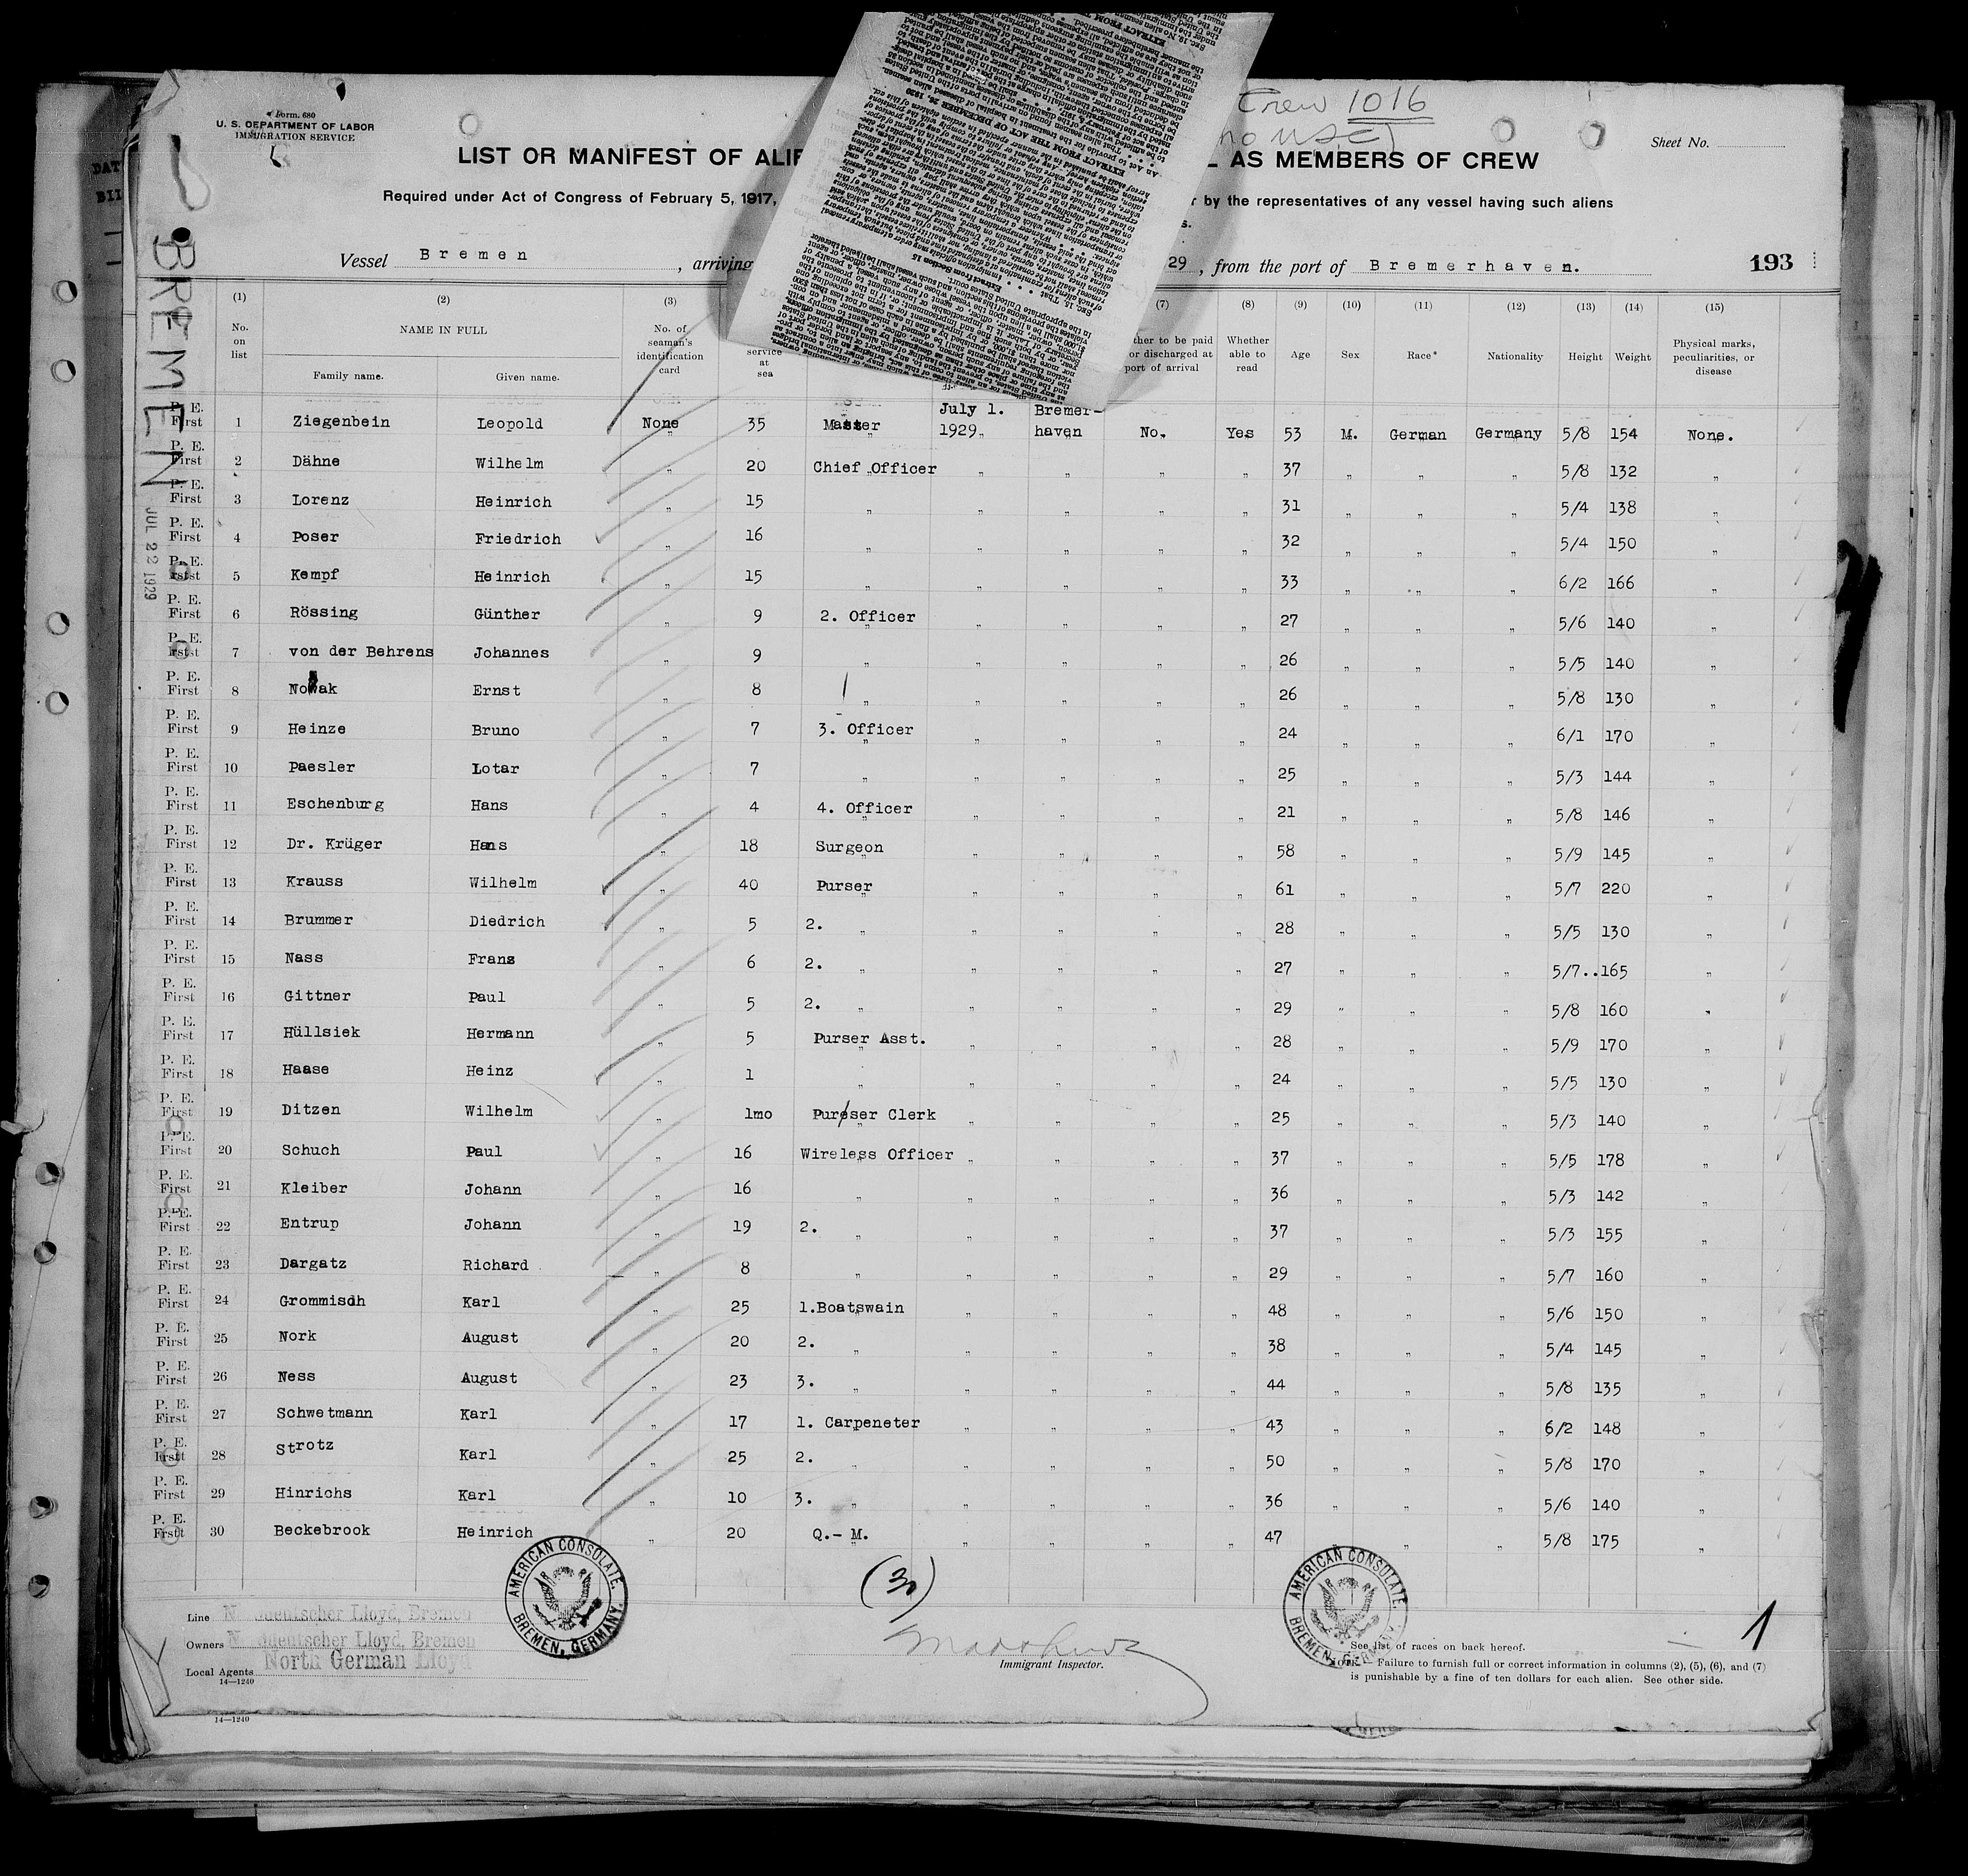 Form. 680
U. S. DEPARTMENT OF LABOR
IMMIGRATION SERVICE
Crew 1016
no U.S.C.
Sheet No.
LIST OR MANIFEST OF ALIE
L AS MEMBERS OF CREW
Required under Act of Congress of February 5, 1917,
r by the representatives of any vessel having such aliens
s.
Vessel Bremen , arriving 29 , from the port of Bremerhaven. 193
BREMEN
JUL 22 1929
EXTRACT FROM THE ACT OF DECEMBER 26, 1920
Extract from Section 15
(1) (2) (3) (7) (8) (9) (10) (11) (12) (13) (14) (15)
No. on list
NAME IN FULL
Family name. Given name.
No. of seaman's identification card
service at sea
ther to be paid or discharged at port of arrival
Whether able to read
Age
Sex
Race*
Nationality
Height
Weight
Physical marks, peculiarities, or disease
P. E. First 1 Ziegenbein Leopold None 35 Master July 1. 1929 Bremer-haven No. Yes 53 M. German Germany 5/8 154 None.
P. E. First 2 Dähne Wilhelm " 20 Chief Officer " " " " 37 " " " 5/8 132 "
P. E. First 3 Lorenz Heinrich " 15 " " " " " 31 " " " 5/4 138 "
P. E. First 4 Poser Friedrich " 16 " " " " " 32 " " " 5/4 150 "
P. E. 5 Kempf Heinrich " 15 " " " " " 33 " " " 6/2 166 "
P. E. First 6 Rössing Günther " 9 2. Officer " " " " 27 " " " 5/6 140 "
P. E. 7 von der Behrens Johannes " 9 " " " " " 26 " " " 5/5 140 "
P. E. First 8 Nowak Ernst " 8 " " " " " 26 " " " 5/8 130 "
P. E. First 9 Heinze Bruno " 7 3. Officer " " " " 24 " " " 6/1 170 "
P. E. First 10 Paesler Lotar " 7 " " " " " 25 " " " 5/3 144 "
P. E. First 11 Eschenburg Hans " 4 4. Officer " " " " 21 " " " 5/8 146 "
P. E. First 12 Dr. Krüger Hans " 18 Surgeon " " " " 58 " " " 5/9 145 "
P. E. First 13 Krauss Wilhelm " 40 Purser " " " " 61 " " " 5/7 220 "
P. E. First 14 Brummer Diedrich " 5 2. " " " " " 28 " " " 5/5 130 "
P. E. First 15 Nass Franz " 6 2. " " " " " 27 " " " 5/7..165 "
P. E. First 16 Gittner Paul " 5 2. " " " " " 29 " " " 5/8 160 "
P. E. First 17 Hüllsiek Hermann " 5 Purser Asst. " " " " 28 " " " 5/9 170 "
P. E. First 18 Haase Heinz " 1 " " " " " 24 " " " 5/5 130 "
P. E. First 19 Ditzen Wilhelm " 1mo Purser Clerk " " " " 25 " " " 5/3 140 "
P. E. First 20 Schuch Paul " 16 Wireless Officer " " " " 37 " " " 5/5 178 "
P. E. First 21 Kleiber Johann " 16 " " " " " 36 " " " 5/3 142 "
P. E. First 22 Entrup Johann " 19 2. " " " " " 37 " " " 5/3 155 "
P. E. First 23 Dargatz Richard " 8 " " " " " 29 " " " 5/7 160 "
P. E. First 24 Grommisdh Karl " 25 1.Boatswain " " " " 48 " " " 5/6 150 "
P. E. First 25 Nork August " 20 2. " " " " " 38 " " " 5/4 145 "
P. E. First 26 Ness August " 23 3. " " " " " 44 " " " 5/8 135 "
P. E. First 27 Schwetmann Karl " 17 1. Carpeneter " " " " 43 " " " 6/2 148 "
P. E. 28 Strotz Karl " 25 2. " " " " " 50 " " " 5/8 170 "
P. E. First 29 Hinrichs Karl " 10 3. " " " " " 36 " " " 5/6 140 "
P. E. 30 Beckebrook Heinrich " 20 Q.- M. " " " " 47 " " " 5/8 175 "
(30)
AMERICAN CONSULATE. BREMEN, GERMANY.
AMERICAN CONSULATE. BREMEN, GERMANY.
Line Norddeutscher Lloyd, Bremen
Owners Norddeutscher Lloyd, Bremen
Local Agents North German Lloyd
14—1240
Immigrant Inspector.
See list of races on back hereof.
NOTE.—Failure to furnish full or correct information in columns (2), (5), (6), and (7)
is punishable by a fine of ten dollars for each alien. See other side.
1
14—1240